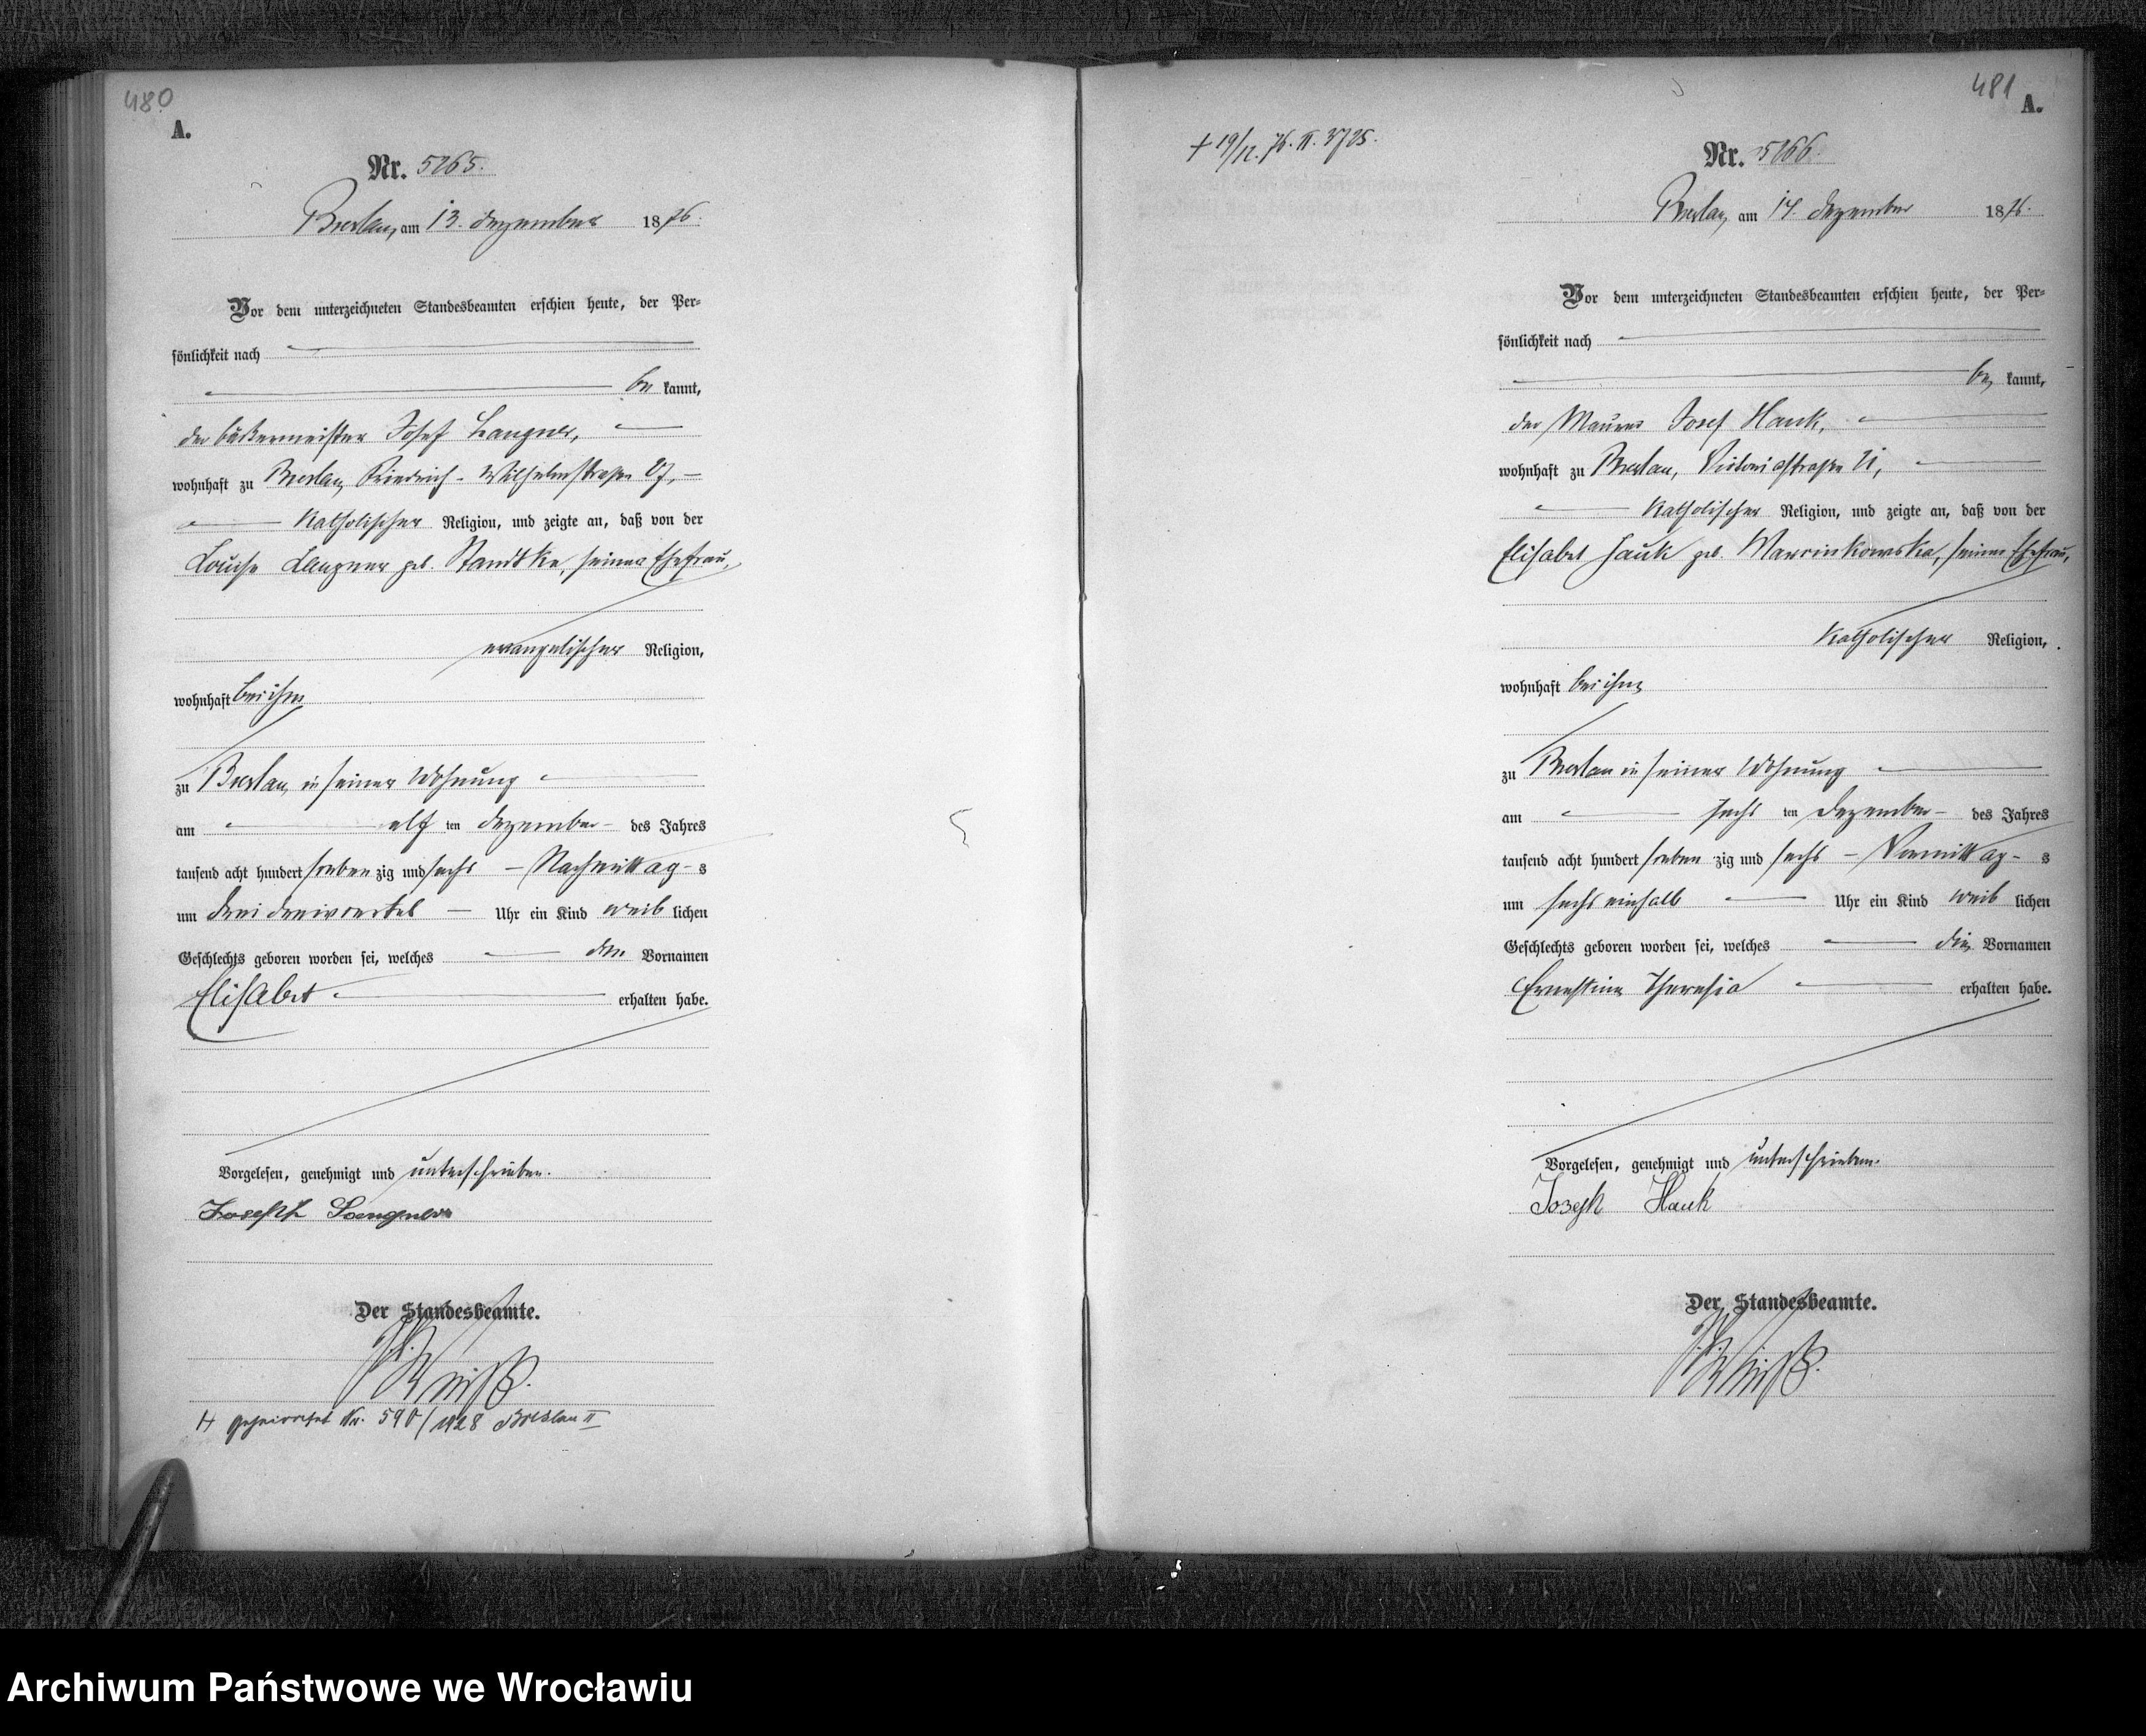 480
A.
Nr. 5265.
Breslau, am 13. Dezember 1876.
Vor dem unterzeichneten Standesbeamten erschien heute, der Per-
sönlichkeit nach
be kannt,
der Bäckermeister Josef Langner,
wohnhaft zu Breslau, Friedrich-Wilhelmstraße 27,
katholischer Religion, und zeigte an, daß von der
Louise Langner geb. Standtke, seiner Ehefrau,
evangelischer Religion,
wohnhaft bei ihm
zu Breslau, in seiner Wohnung
am elf ten Dezember des Jahres
tausend acht hundert sieben zig und sechs Nachmittag s
um drei dreiviertel Uhr ein Kind weib lichen
Geschlechts geboren worden sei, welches den Vornamen
Elisabet erhalten habe.
Vorgelesen, genehmigt und unterschrieben.
Joseph Langner
Der Standesbeamte.
geheiratet Nr. 590/1928 Breslau II
481
A.
† 19/12. 76. II. 3725.
Nr. 5266.
Breslau, am 14. Dezember 1876.
Vor dem unterzeichneten Standesbeamten erschien heute, der Per-
sönlichkeit nach
be kannt,
der Maurer Josef Hauk,
wohnhaft zu Breslau, Victoriastraße 21,
katholischer Religion, und zeigte an, daß von der
Elisabet Hauk geb. Marcinkowska, seiner Ehefrau,
katholischer Religion,
wohnhaft bei ihm
zu Breslau in seiner Wohnung
am sechs ten Dezember des Jahres
tausend acht hundert sieben zig und sechs Vormittag s
um sechs einhalb Uhr ein Kind weib lichen
Geschlechts geboren worden sei, welches die Vornamen
Ernestine Theresia erhalten habe.
Vorgelesen, genehmigt und unterschrieben.
Joseph Hauk
Der Standesbeamte.
Archiwum Państwowe we Wrocławiu